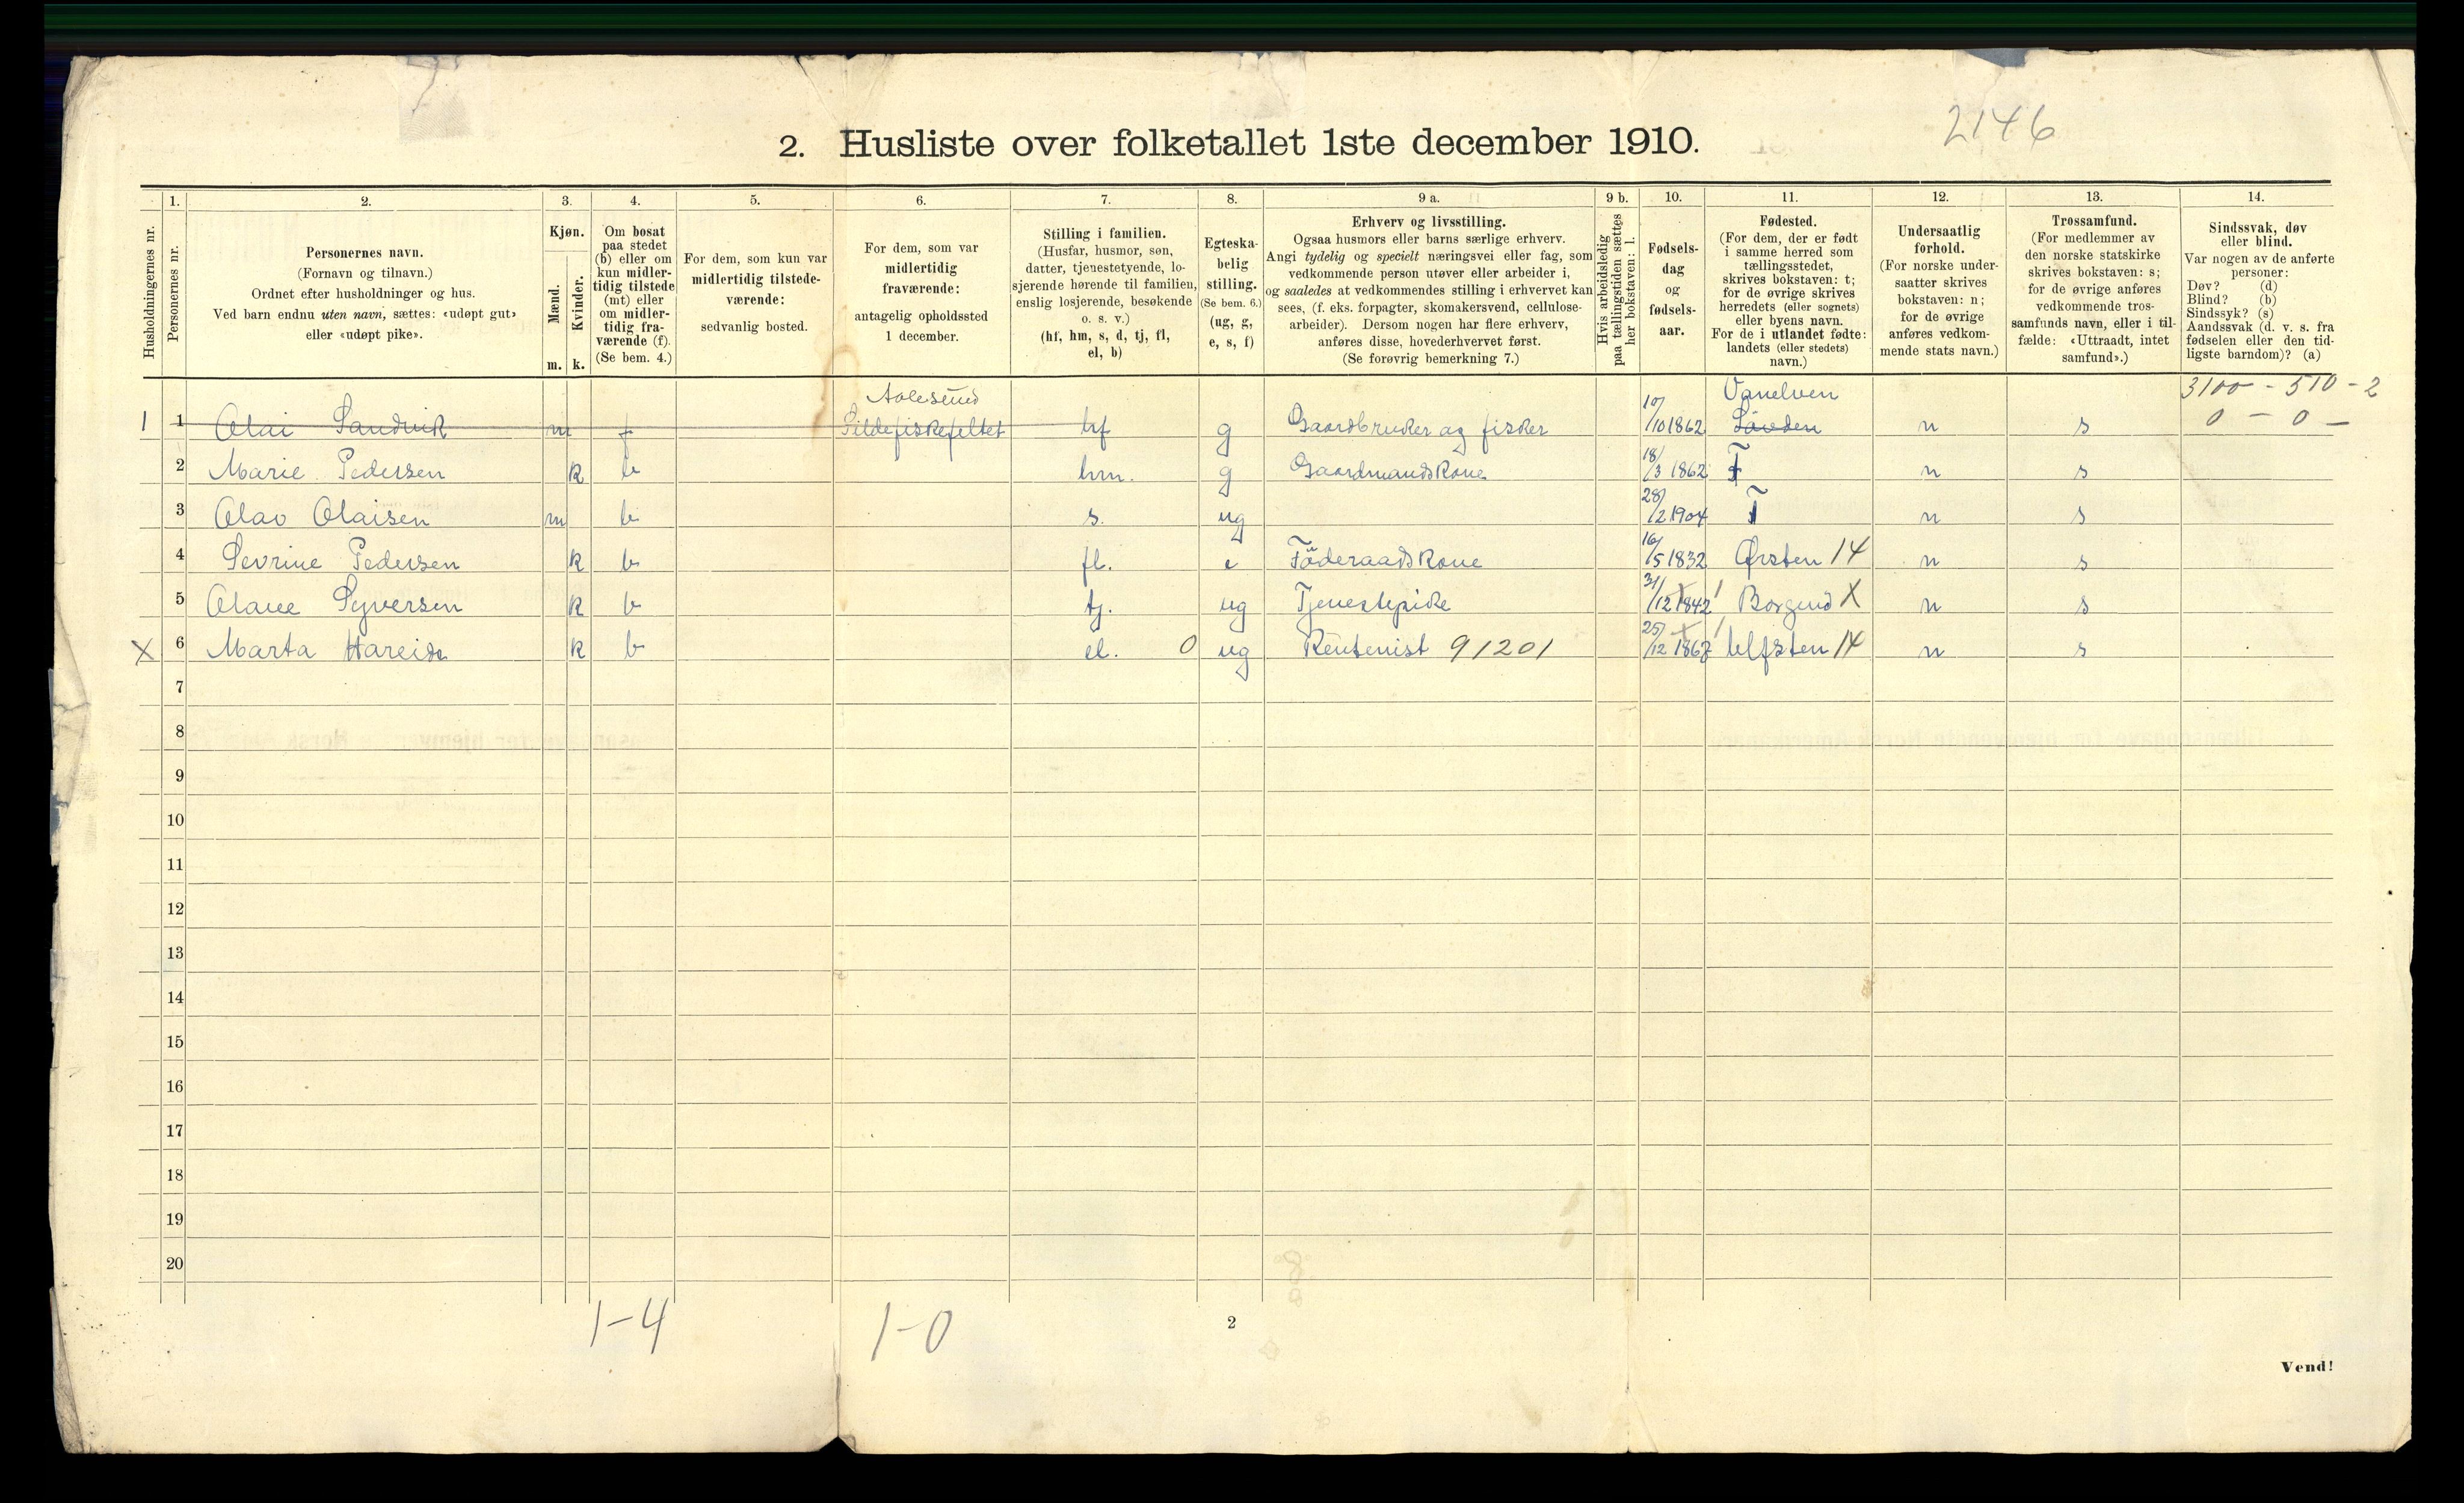 2146
2. Husliste over folketallet 1ste december 1910.
1. 2. 3. 4. 5. 6. 7. 8. 9 a. 9 b. 10. 11. 12. 13. 14.
Husholdningernes nr.
Personernes nr.
Personernes navn.
(Fornavn og tilnavn.)
Ordnet efter husholdninger og hus.
Ved barn endnu uten navn, sættes: «udøpt gut»
eller «udøpt pike».
Kjøn.
Mænd.
Kvinder.
m. k.
Om bosat
paa stedet
(b) eller om
kun midler-
tidig tilstede
(mt) eller
om midler-
tidig fra-
værende (f).
(Se bem. 4.)
For dem, som kun var
midlertidig tilstede-
værende:
sedvanlig bosted.
For dem, som var
midlertidig
fraværende:
antagelig opholdssted
1 december.
Stilling i familien.
(Husfar, husmor, søn,
datter, tjenestetyende, lo-
sjerende hørende til familien,
enslig losjerende, besøkende
o. s. v.)
(hf, hm, s, d, tj, fl,
el, b)
Egteska-
belig
stilling.
(Se bem. 6.)
(ug, g,
e, s, f)
Erhverv og livsstilling.
Ogsaa husmors eller barns særlige erhverv.
Angi tydelig og specielt næringsvei eller fag, som
vedkommende person utøver eller arbeider i,
og saaledes at vedkommendes stilling i erhvervet kan
sees, (f. eks. forpagter, skomakersvend, cellulose-
arbeider). Dersom nogen har flere erhverv,
anføres disse, hovederhvervet først.
(Se forøvrig bemerkning 7.)
Hvis arbeidsledig
paa tællingstiden sættes
her bokstaven: l.
Fødsels-
dag
og
fødsels-
aar.
Fødested.
(For dem, der er født
i samme herred som
tællingsstedet,
skrives bokstaven: t;
for de øvrige skrives
herredets (eller sognets)
eller byens navn.
For de i utlandet fødte:
landets (eller stedets)
navn.)
Undersaatlig
forhold.
(For norske under-
saatter skrives
bokstaven: n;
for de øvrige
anføres vedkom-
mende stats navn.)
Trossamfund.
(For medlemmer av
den norske statskirke
skrives bokstaven: s;
for de øvrige anføres
vedkommende tros-
samfunds navn, eller i til-
fælde: «Uttraadt, intet
samfund».)
Sindssvak, døv
eller blind.
Var nogen av de anførte
personer:
Døv? (d)
Blind? (b)
Sindssyk? (s)
Aandssvak (d. v. s. fra
fødselen eller den tid-
ligste barndom)? (a)
Aalesund Vanelven 3100 - 510 - 2
1 1 Olai Sandvik m f Sildefiskefeltet hf g Gaardbruker og fisker 10/10 1862 n s 0 - 0 -
2 Marie Pedersen k b hm. g Gaardmandskone 18/3 1862 T n s
3 Olav Olaisen m b s. ug 28/2 1904 T n s
4 Sevrine Pedersen k b fl. e Föderaadskone 16/5 1832 Ørsten 14 n s
5 Olave Syversen k b tj. ug Tjenestepike 31/12 1842 Borgund X n s
X 6 Marta Hareide k b el. 0 ug Rentenist 91201 25/12 1867 Ulfsten 14 n s
7
8
9
10
11
12
13
14
15
16
17
18
19
20
1-4 1-0
2
Vend!